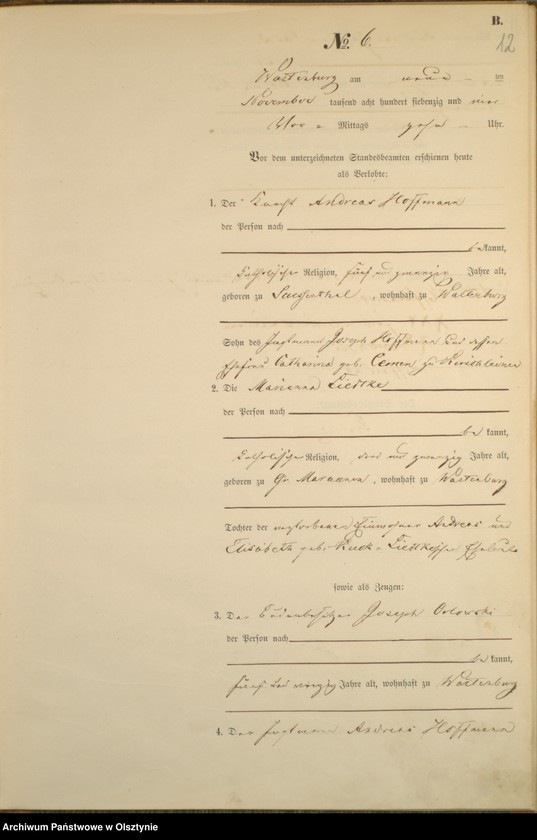 B.
12
No. 6.
Wartenburg am neun ten
November tausend acht hundert siebenzig und vier
Vor Mittags zehn Uhr.
Vor dem unterzeichneten Standesbeamten erschienen heute
als Verlobte:
1. Der Knecht Andreas Hoffmann
der Person nach
bekannt,
katholischer Religion, fünf und zwanzig Jahre alt,
geboren zu, wohnhaft zu Wartenburg
Sohn des Joseph Hoffmann und dessen
Ehefrau Catharina geb. zu
2. Die Marianna Liedtke
der Person nach
bekannt,
katholischer Religion, drei und zwanzig Jahre alt,
geboren zu Gr., wohnhaft zu Wartenburg
Tochter der verstorbenen Einwohner Andreas und
Elisabeth geb. Liedtkeschen Eheleute
sowie als Zeugen:
3. Der Joseph Orlowski
der Person nach
bekannt,
fünf und vierzig Jahre alt, wohnhaft zu Wartenburg
4. Der Andreas Hoffmann
Archiwum Państwowe w Olsztynie